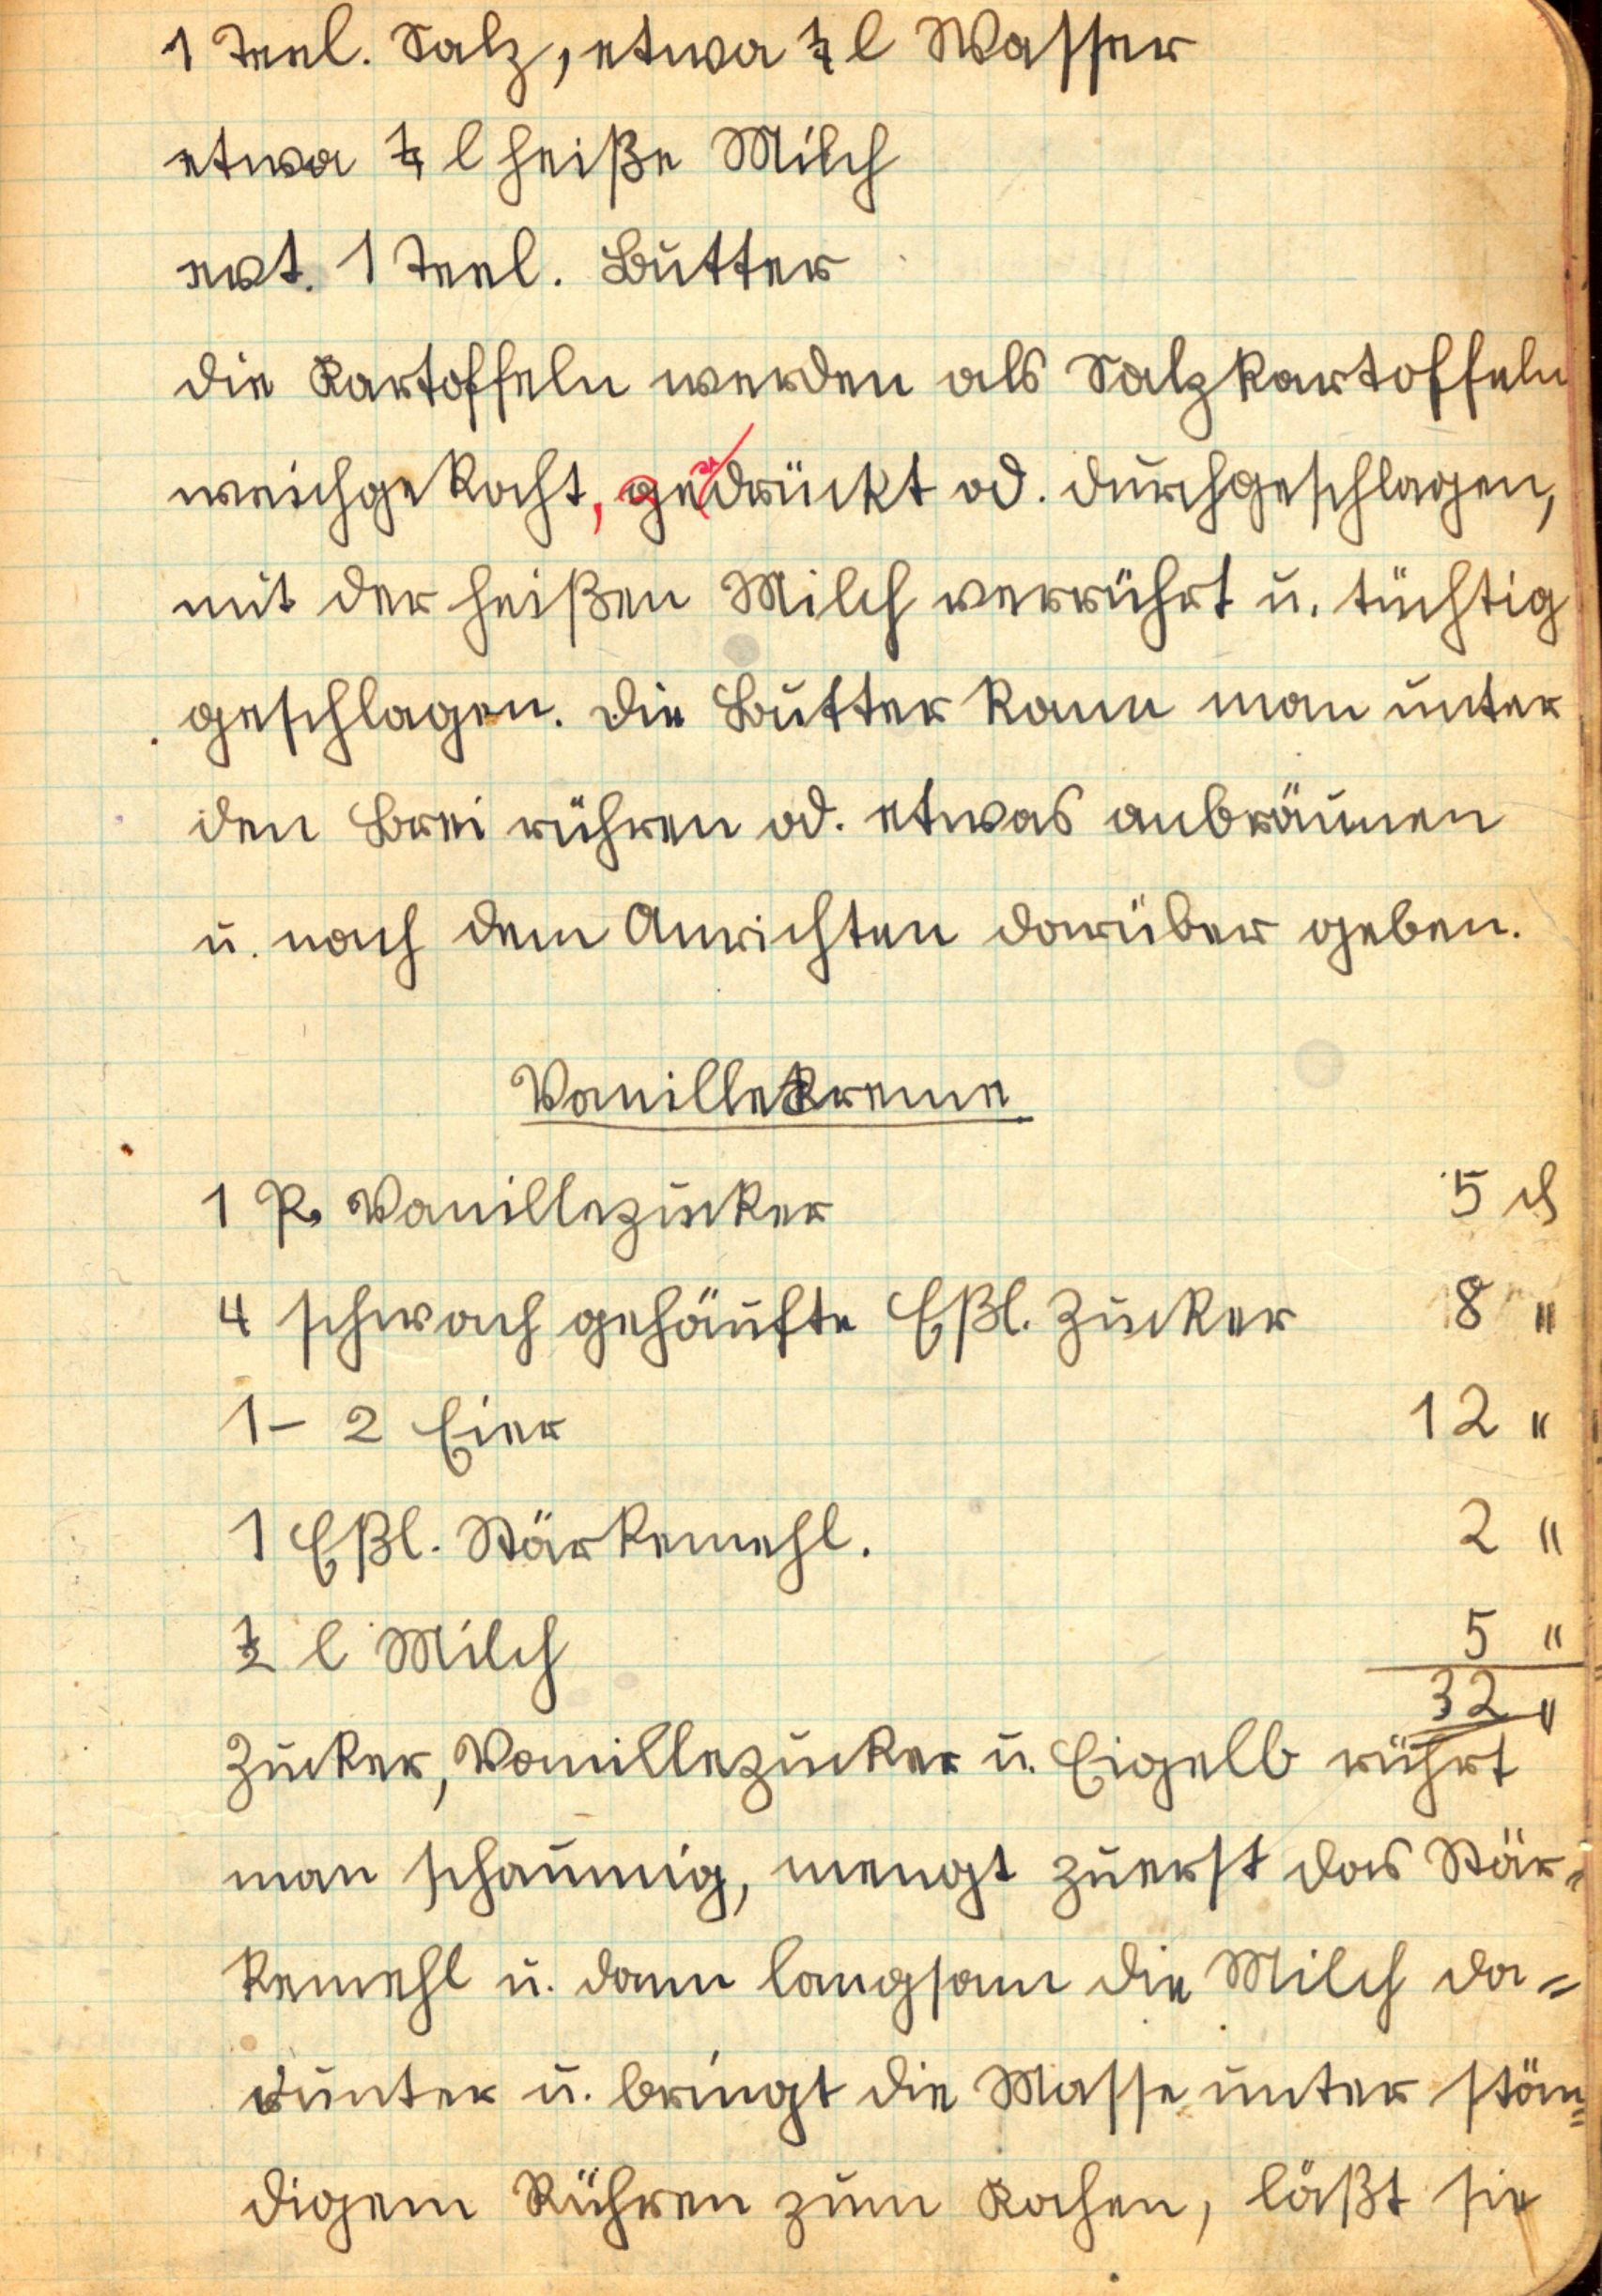 1 Teel. Salz, etwa ¼ l Wasser
etwa ¼ l heiße Milch
evt. 1 Teel. Butter
die Kartoffeln werden als Salzkartoffeln
weichgekocht, gedrückt od. durchgeschlagen,
mit der heißen Milch verrührt u. tüchtig
geschlagen. Die Butter kann man unter
den Brei rühren od. etwas anbräunen
u. nach dem Anrichten darüber geben.
Vanillekreme
1 P. Vanillezucker 5 ₰
4 schwach gehäufte Eßl. Zucker 8 "
1 – 2 Eier 12 "
1 Eßl. Stärkemehl. 2 "
½ l Milch 5 "
32 "
Zucker, Vanillezucker u. Eigelb rührt
man schaumig, mengt zuerst das Stär-
kemehl u. dann langsam die Milch da=
runter u. bringt die Masse unter stän=
digem Rühren zum Kochen, läßt sie